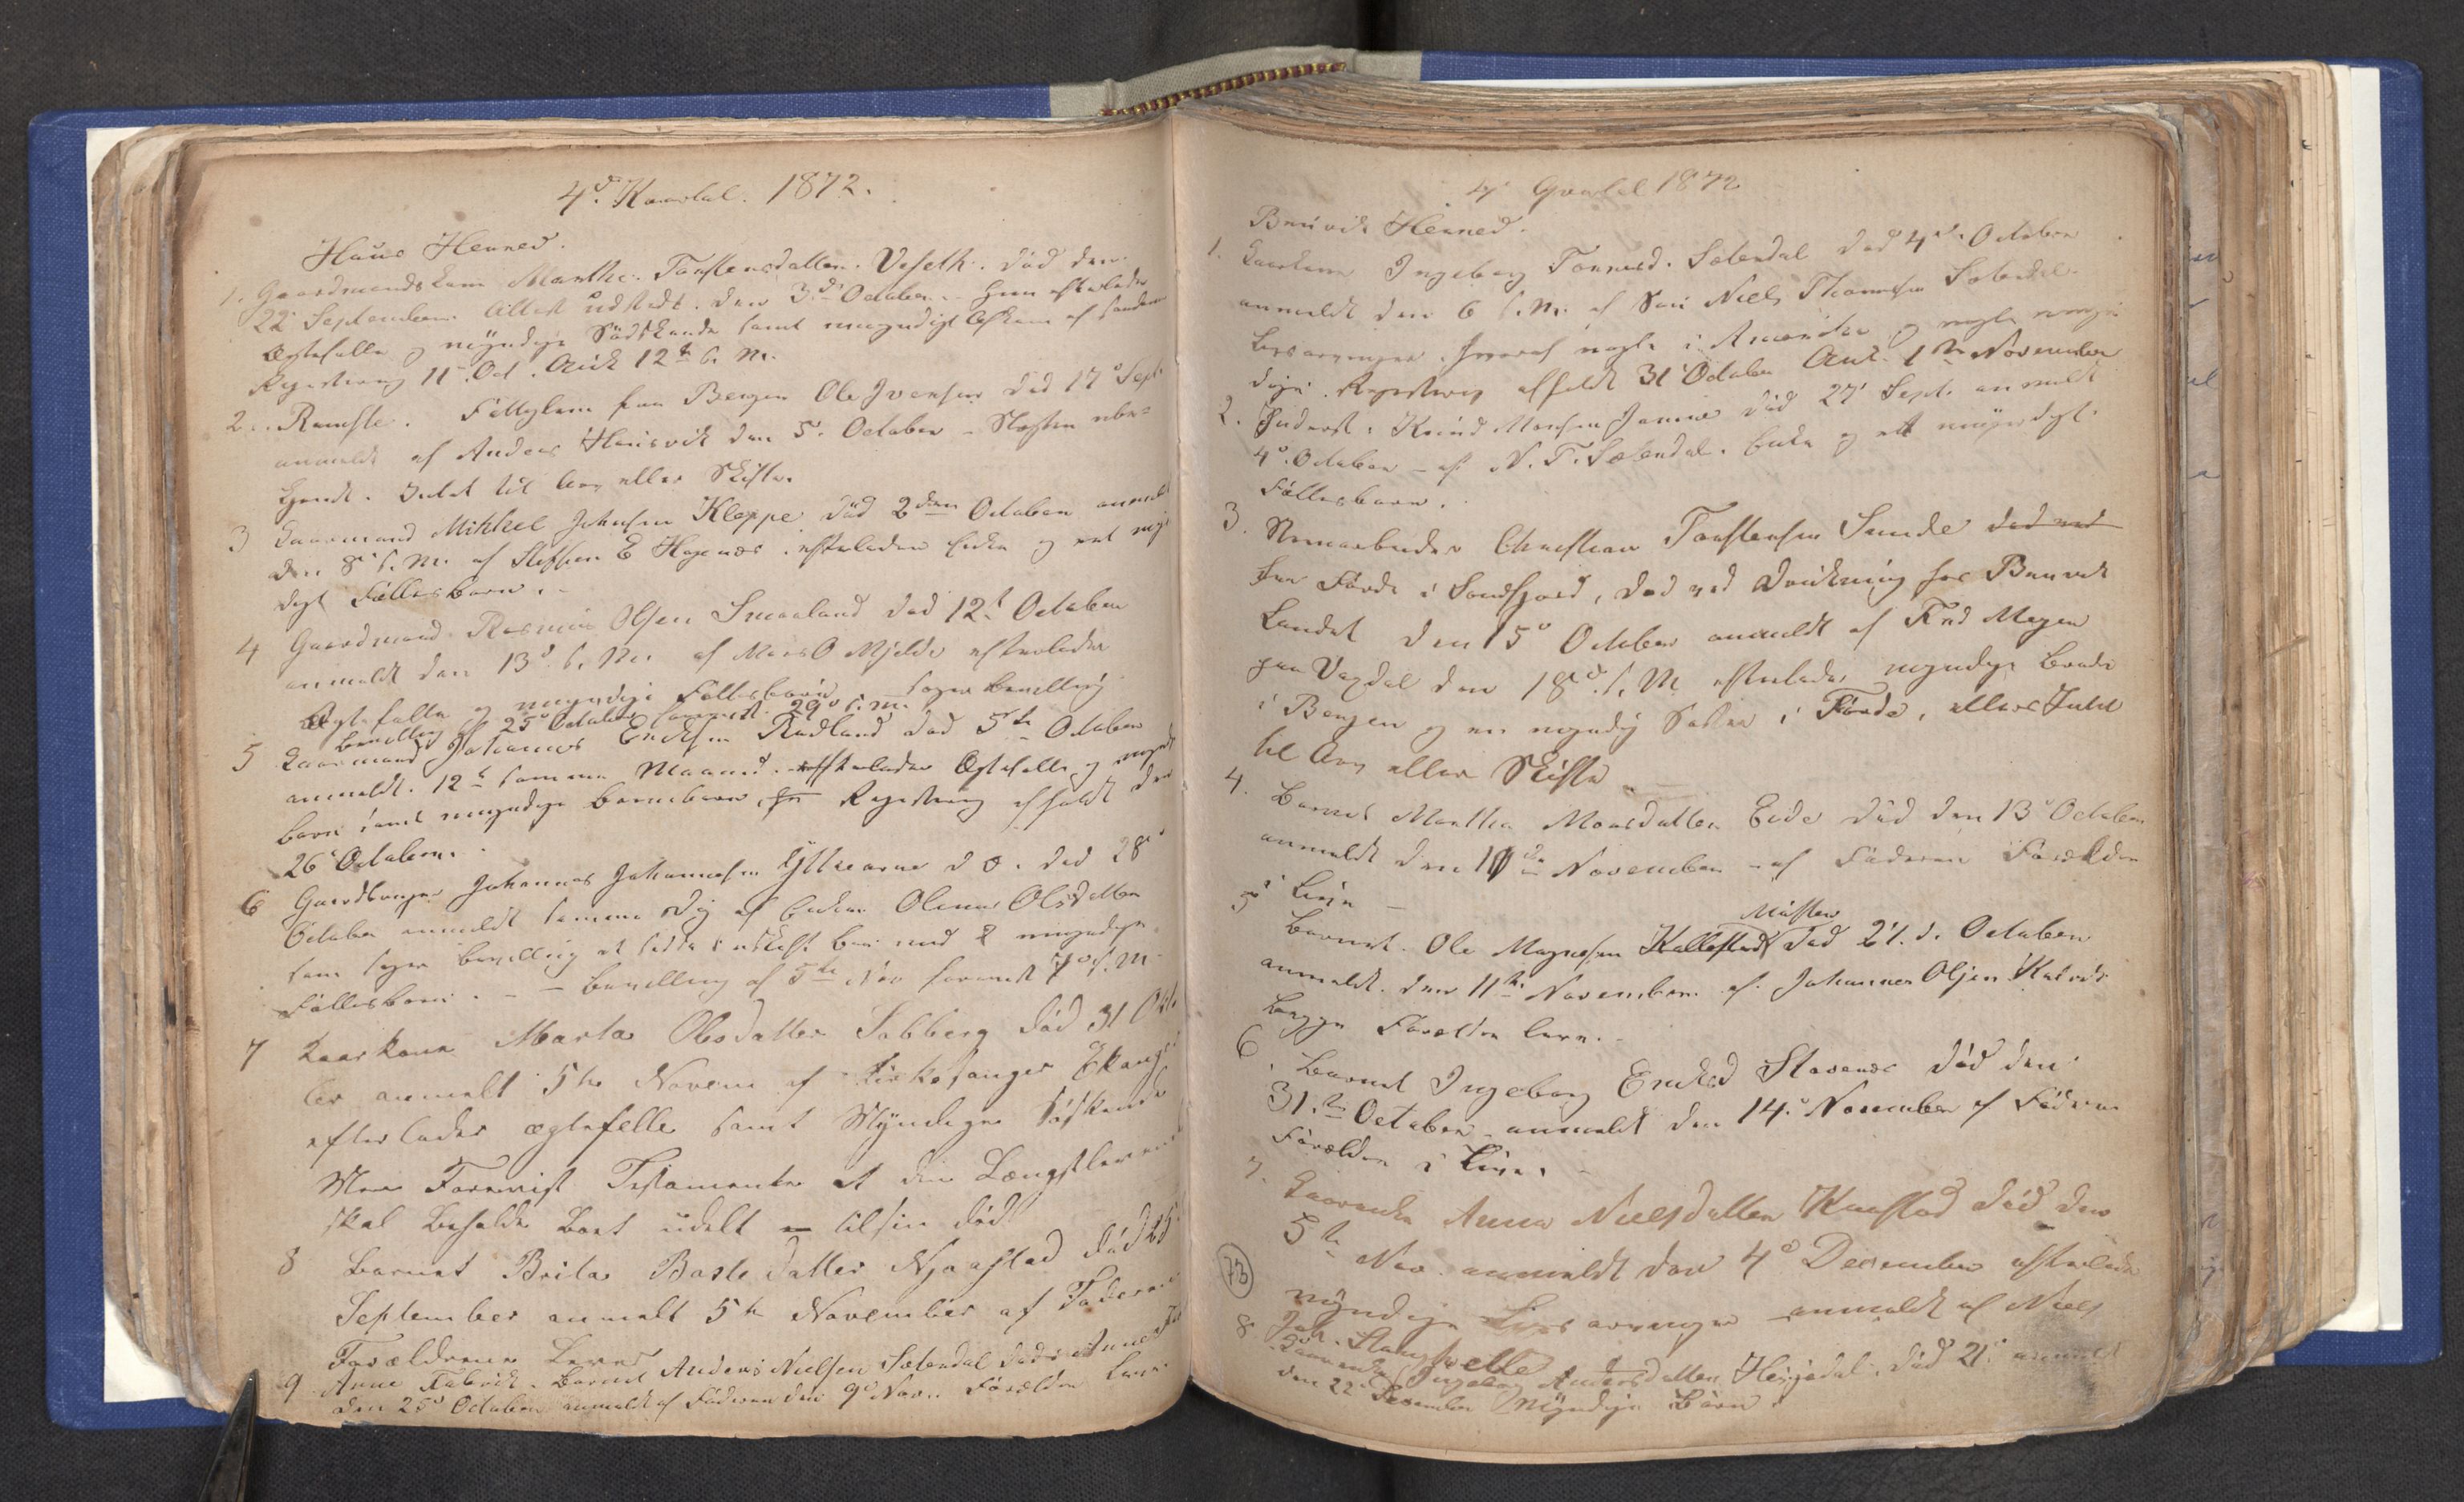 4de Kvartal. 1872.
Haus Herred.
1. Gaardmandskone Marthe Torstensdatter Veseth. død den
22 September. Attest udstedt den 3die October. Hun efterlader
Ægtefælle og myndige Södskende samt umyndigt Afkom af
Registrering 11 Oct. Auk 12te s. M.
2. Ramsle. Fattiglem fra Bergen Ole Iversen död 17de Sept.
anmeldt af Anders Hausvik den 5te October - Slægten ube=
kjendt. Intet til Arv eller Skifte.
3 Kaarmand Mikkel Johnsen Kleppe död 2den October anmeldt
den 8de s. M. af Steffen E Hagenæs. efterlader Enke og et myn
digt Fællesbarn. -
4 Gaardmand Rasmus Olsen Smaaland död 12te October
anmeldt den 13de s. M. af Mons O Mjelde efterlader
Ægtefælle og myndige Fællesbørn søger bevilling
bevilling af 25de October 29de s. m.
5 Kaarmand Johannes Ericksen Rödland död 5te October
anmeldt 12te samme Maaned. efterlader Ægtefælle og mynd
børn samt umyndige Barnebørn. Registrering afholdt den
26de October.
6 Gaardbruger Johannes Johannesen Ytrearne d. o. död 28de
October anmeldt samme Dag af Enken Olena Olsdatter
som søger bevilling at sidde i uskiftet bo med 2 umyndige
Fællesbørn. - - Bevilling af 5te Nov 7de s. M.
7 Kaarkone Marta Olesdatter Solberg död 31 Okto
ber anmelt 5te Novem af Kirkesanger Ekanger
efterlader ægtefelle samt Myndige Söskende
Men Forevist Testamente at den Længstlevende
skal Beholde Boet udelt til sin död
8 Barnet Brita Bastedatter Njaastad död 15
September anmelt 5te November af Faderen
Foreldrene Lever
9 Arne Fabrik. Barnet Anders Nielsen Sætendal död
den 25de October anmeldt af Faderen den 9de Novr. Forældre Lever
4de Qvartal 1872
Bruvik Herred.
1. Kaarkone Ingeborg Tormod. Sætendal död 4de October
anmeldt den 6 s. M. af Søn Niels Thormodsen Sætendal.
Livsarvinger, hvoraf nogle i Amerika og nogle umyn
dige. Registrering afholdt 31 October Auk. 1te November
2. Inderst Knud Monsen Jamne död 27de Sept. anmeldt
4de October - af N. T. Sætendal. Enke og et umyndigt
Fællesbarn.
3. Stenarbeider Christian Torstensen Sunde död ved
fra Förde i Söndfjord, död ved Drukning for Bruvik
Landet den 15de October anmeldt af Knd Magen
paa Vagdal den 18de s. M. efterlader myndige Brødre
i Bergen og en myndig Søster i Förde, ellers Intet
til Arv eller Skifte.
4. Barnet Martha Monsdatter Eide död den 13de October
anmeldt den 10de November - af Faderen Forældre
i Live -
5 Barnet Ole Magnesen Kallestad Müster död 21de October
anmeldt den 11te November af Johannes Olsen
begge Forældre lever.
6. Barnet Ingeborg Ericksd Stavenæs död den
31te October anmeldt den 14de November af Faderen
Forældre i Live.
7. Kaarenke Anna Nielsdatter död den
5te Nov. anmeldt den 4de December efterlader
myndige Livsarvinger anmeldt af Niels
Joh. Stamphelle
73
8 Kaarenke Ingeborg Andersdatter Herfindal, död 21de anmeldt
den 22de December Myndige Børn.